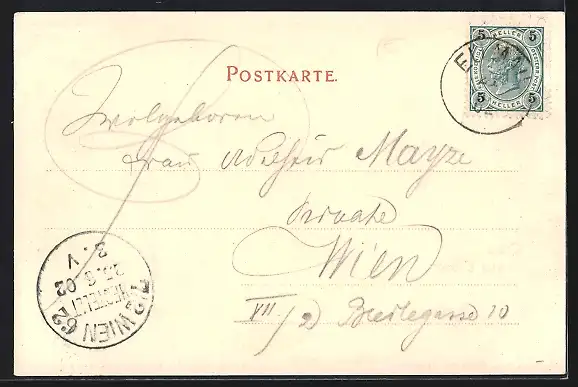 POSTKARTE.
5 HELLER 5
5 HELLER 5
Wolgeboren
Frau
Mayze
Private
Wien
VII/2 Breitegasse 10
7/2 WIEN 62
BESTELLT
25.6.02
3.V